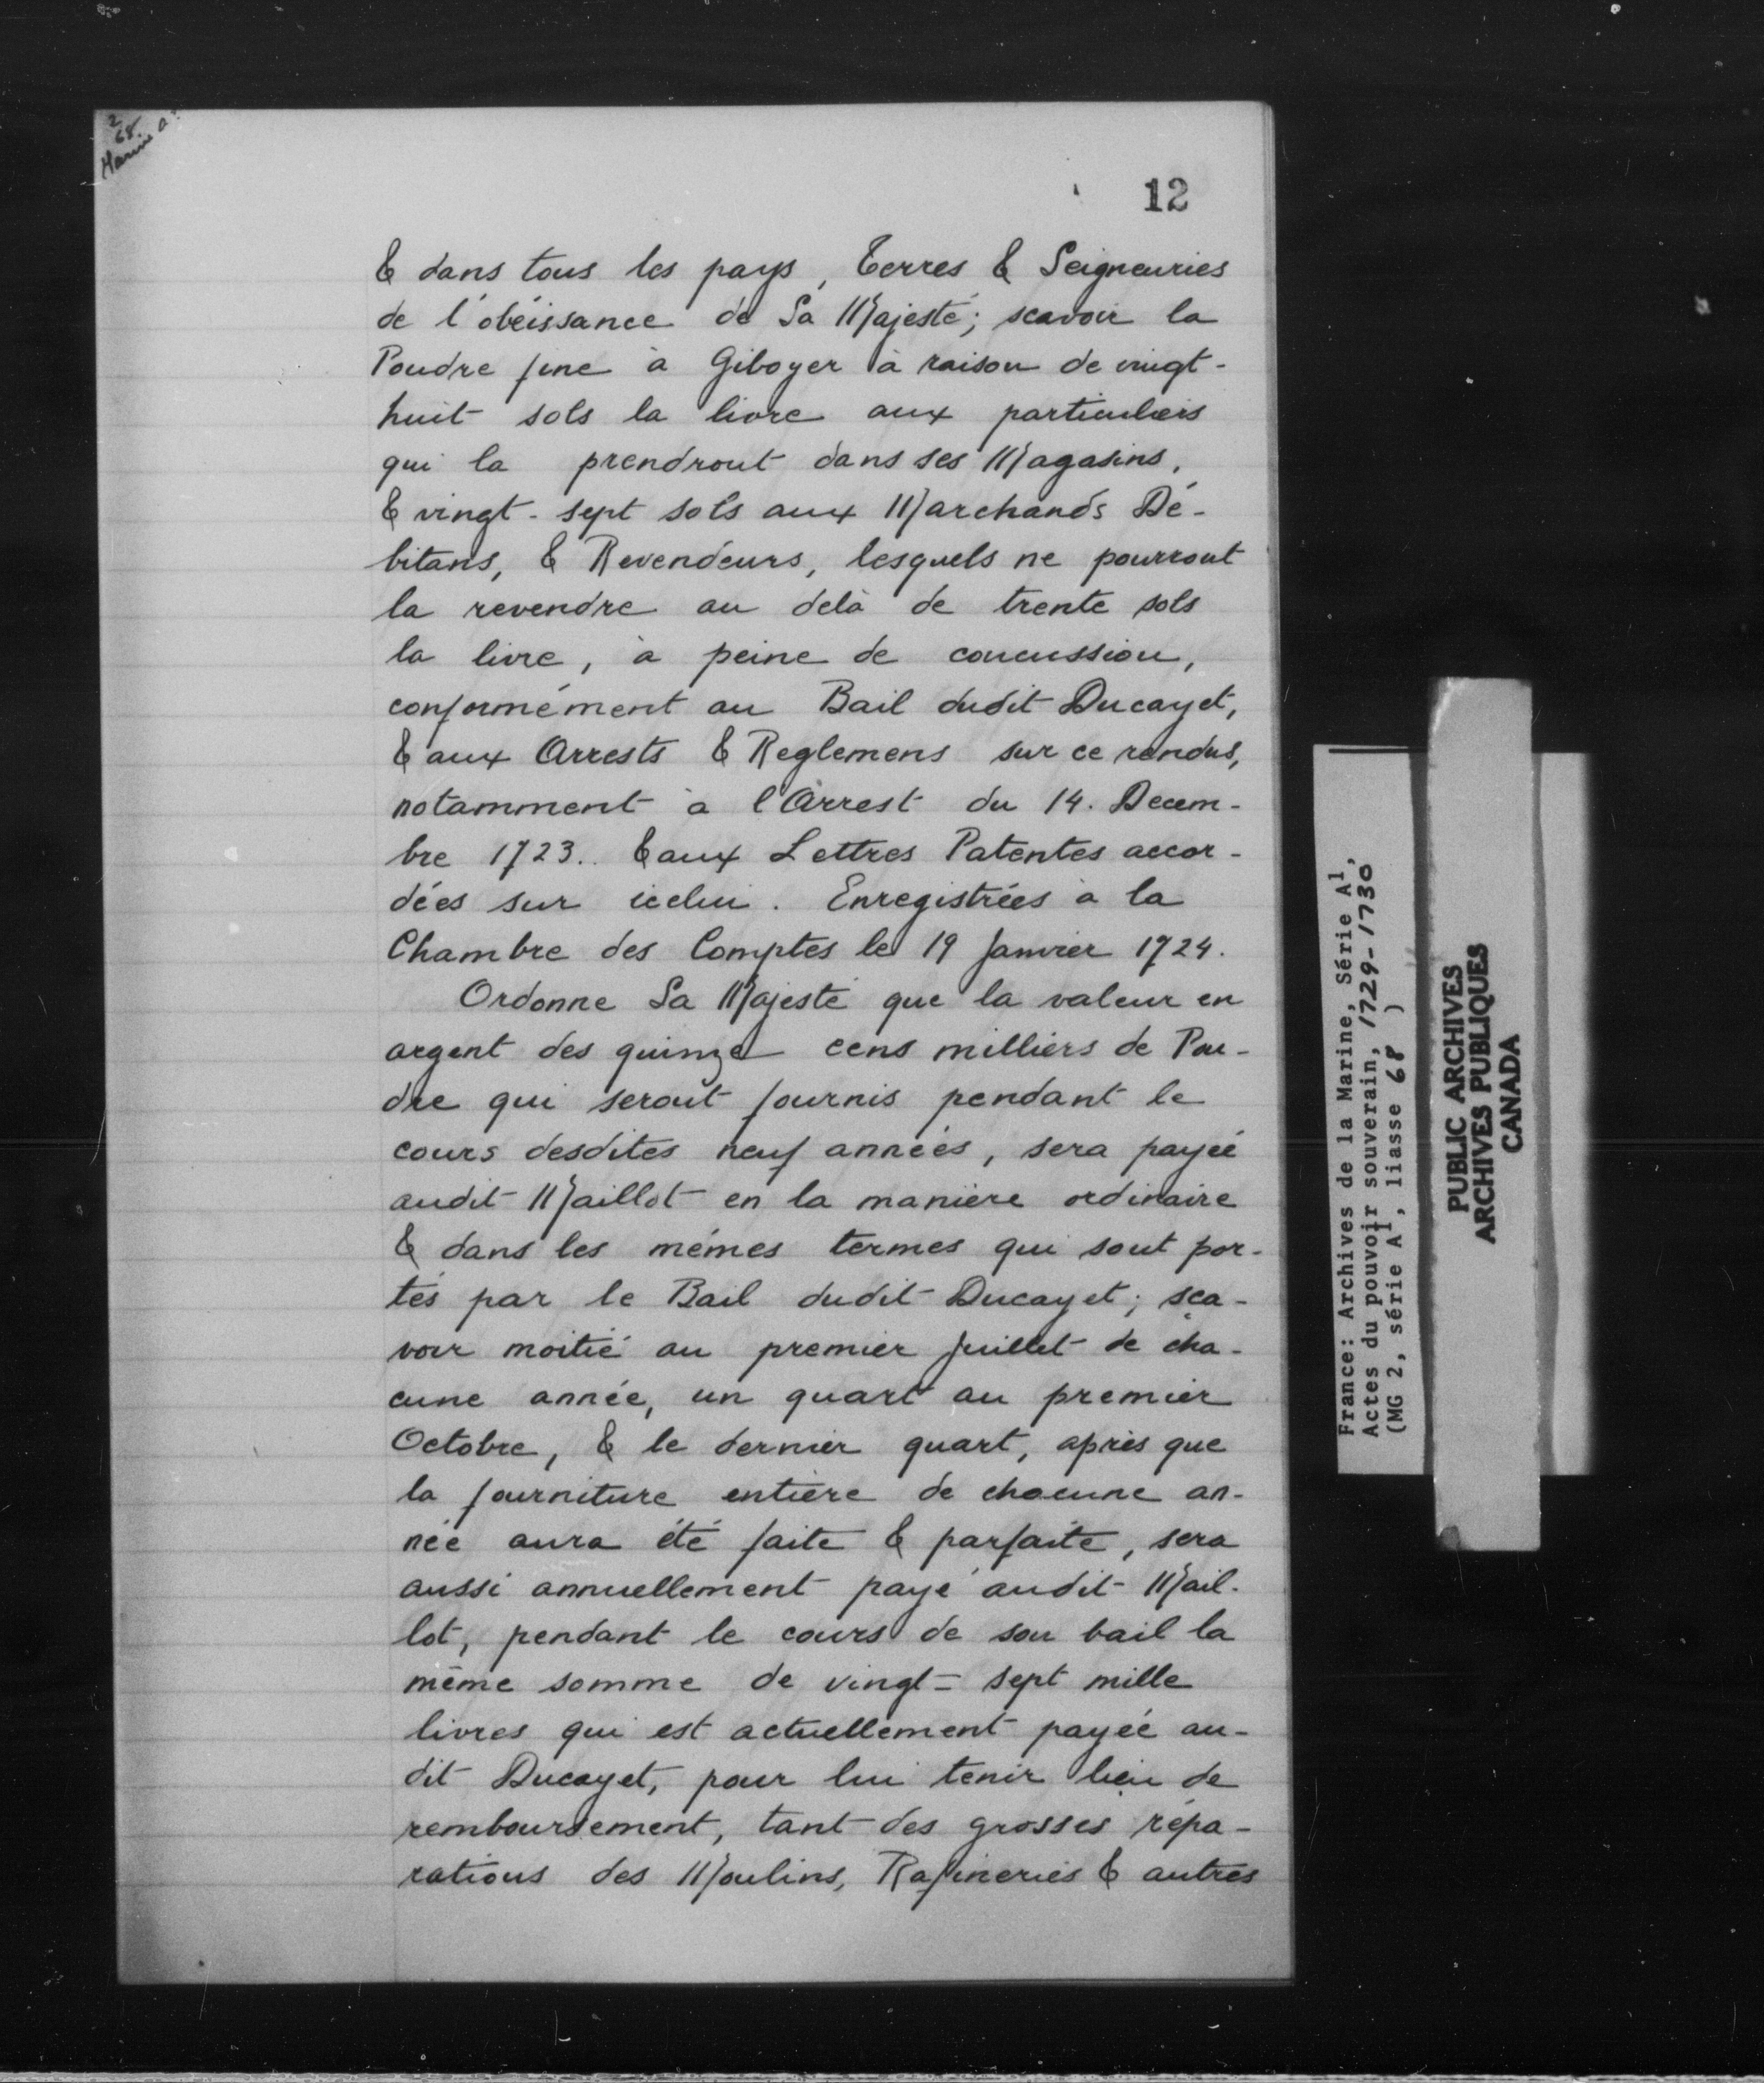 2
68.
Marine a1
12
& dans tous les pays, Terres & Seigneuries
de l'obéissance de Sa Majesté; scavoir la
Poudre fine à Giboyer à raison de vingt-
huit sols la livre aux particuliers
qui la prendront dans ses Magasins,
& vingt-sept sols aux Marchands Dé-
bitans, & Revendeurs, lesquels ne pourront
la revendre au delà de trente sols
la livre, à peine de concussion,
conformément au Bail dudit Ducayet,
& aux Arrests & Reglemens sur ce rendus,
notamment à l'Arrest du 14. Decem-
bre 1723.. & aux Lettres Patentes accor-
dées sur icelui. Enregistrées à la
Chambre des Comptes le 19 Janvier 1724.
Ordonne Sa Majesté que la valeur en
argent des quinze cens milliers de Pou-
dre qui seront fournis pendant le
cours desdites neuf années, sera payée
audit Maillot en la manière ordinaire
& dans les mêmes termes qui sont por-
tés par le Bail dudit Ducayet; sça-
voir moitié au premier Juillet de cha-
cune année, un quart au premier
Octobre, & le dernier quart, après que
la fourniture entière de chacune an-
née aura été faite & parfaite, sera
aussi annuellement payé audit Mail-
lot, pendant le cours de son bail la
même somme de vingt-sept mille
livres qui est actuellement payée au-
dit Ducayet, pour lui tenir lieu de
remboursement, tant des grosses répa-
rations des Moulins, Rafineries & autres
France: Archives de la Marine, Série A1,
Actes du pouvoir souverain, 1729-1730
(MG 2, série A1, liasse 68 )
PUBLIC ARCHIVES
ARCHIVES PUBLIQUES
CANADA